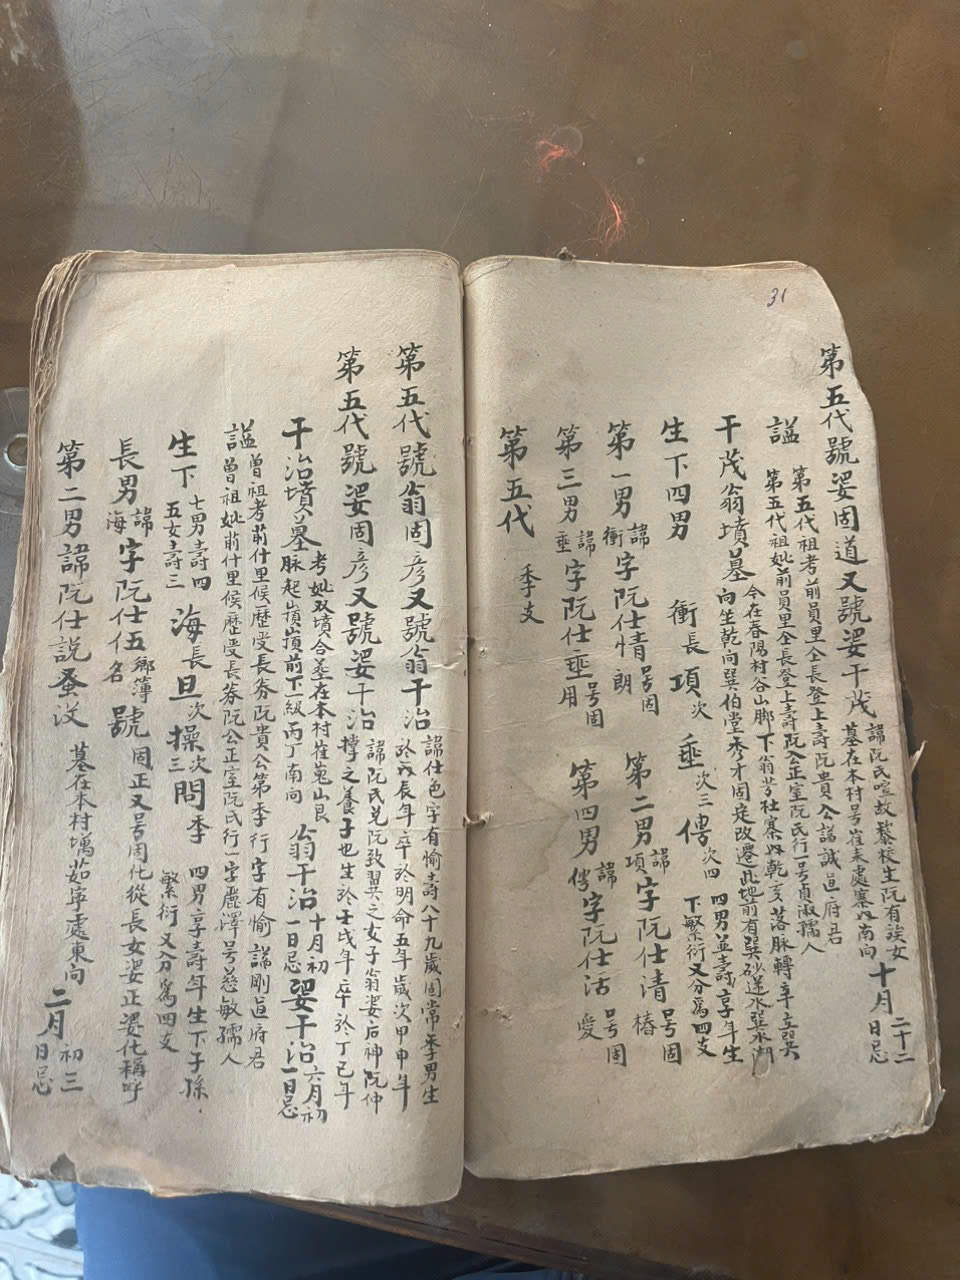 31
第五代號婆固道又號婆干茂 諱阮氏喧故黎校生阮有談女
墓在本村号崔未處寨如南向 十月 二十二
日忌
謚 第五代祖考前員里仝長登上壽阮貴公諡誠直府君
第五代祖妣前員里仝長登上壽阮公正室阮氏行一号貞淑孺人
干茂翁墳墓 今在春陽村谷山脚下翁芳社寨如乾亥落脉轉辛立巽
向坐乾向巽伯堂秀才固定改遷此地前有巽砂逆水巽水潮
生下四男 衝長 項次 垂次三 傳次四 四男並壽享年生
下繁衍又分爲四支
第一男 諱衝 字阮仕情 号固朗 第二男 諱項 字阮仕清 号固椿
第三男 諱垂 字阮仕垂 号固用 第四男 諱傳 字阮仕活 号固愛
第五代 季支
第五代號翁固彦又號翁干治 諱仕色字有愉壽八十九歲固常季男生
於戊辰年卒於明命五年歲次甲申年
第五代號婆固彦又號婆干治 諱阮氏兑阮致翼之女子翁婆后神阮仲
撑之養子也生於壬戌年卒於丁巳年
干治墳墓 考妣双墳合葬在本村崔嵬山艮
脉起嵿嵿前下級丙丁南向 翁干治 十月初
一日忌 婆干治 六月初
一日忌
謚 曾祖考前什里候歷受長券阮貴公第季行字有愉諡剛直府君
曾祖妣前什里候歷受長券阮公正室阮氏行一字麗澤号慈敏孺人
生下 七男壽四
五女壽三 海長 旦次 操次三 問季 四男享壽年生下子孫
繁衍又分爲四支
長男 諱海 字阮仕伍 鄉簿名 號 固正又号固化從長女婆正婆化稱呼
第二男諱阮仕説蚤没 墓在本村堨茹寧處東向 二月 初三
日忌